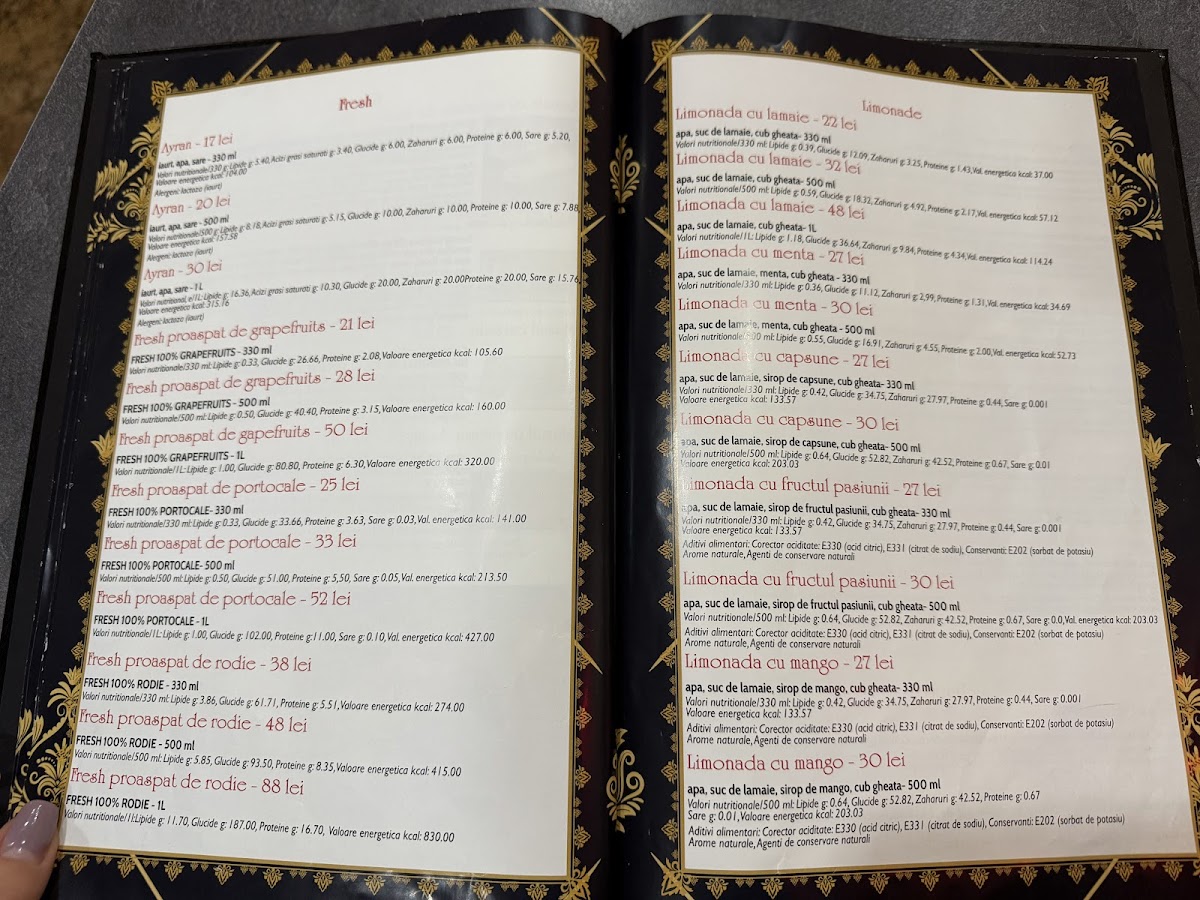 Fresh
Ayran - 17 lei
iaurt, apa, sare - 330 ml
Valori nutritionale/330 g: Lipide g: 5.40, Acizi grasi saturati g: 3.40, Glucide g: 6.00, Zaharuri g: 6.00, Proteine g: 6.00, Sare g: 5.20,
Valoare energetica kcal: 104.00
Alergeni: lactoza (iaurt)
Ayran - 20 lei
iaurt, apa, sare - 500 ml
Valori nutritionale/500 g: Lipide g: 8.18, Acizi grasi saturati g: 5.15, Glucide g: 10.00, Zaharuri g: 10.00, Proteine g: 10.00, Sare g: 7.88
Valoare energetica kcal: 157.58
Alergeni: lactoza (iaurt)
Ayran - 30 lei
iaurt, apa, sare - 1L
Valori nutritional, e/1L: Lipide g: 16.36, Acizi grasi saturati g: 10.30, Glucide g: 20.00, Zaharuri g: 20.00Proteine g: 20.00, Sare g: 15.76
Valoare energetica kcal: 315.16
Alergeni: lactoza (iaurt)
Fresh proaspat de grapefruits - 21 lei
FRESH 100% GRAPEFRUITS - 330 ml
Valori nutritionale/330 ml: Lipide g: 0.33, Glucide g: 26.66, Proteine g: 2.08, Valoare energetica kcal: 105.60
Fresh proaspat de grapefruits - 28 lei
FRESH 100% GRAPEFRUITS - 500 ml
Valori nutritionale/500 ml: Lipide g: 0.50, Glucide g: 40.40, Proteine g: 3.15, Valoare energetica kcal: 160.00
Fresh proaspat de gapefruits - 50 lei
FRESH 100% GRAPEFRUITS - 1L
Valori nutritionale/1L: Lipide g: 1.00, Glucide g: 80.80, Proteine g: 6.30, Valoare energetica kcal: 320.00
Fresh proaspat de portocale - 25 lei
FRESH 100% PORTOCALE- 330 ml
Valori nutritionale/330 ml: Lipide g:0.33, Glucide g: 33.66, Proteine g: 3.63, Sare g: 0.03, Val. energetica kcal: 141.00
Fresh proaspat de portocale - 33 lei
FRESH 100% PORTOCALE- 500 ml
Valori nutritionale/500 ml: Lipide g: 0.50, Glucide g: 51.00, Proteine g: 5,50, Sare g: 0.05, Val. energetica kcal: 213.50
Fresh proaspat de portocale - 52 lei
FRESH 100% PORTOCALE - 1L
Valori nutritionale/1L: Lipide g: 1.00, Glucide g: 102.00, Proteine g:11.00, Sare g: 0.10, Val. energetica kcal: 427.00
Fresh proaspat de rodie - 38 lei
FRESH 100% RODIE - 330 ml
Valori nutritionale/330 ml: Lipide g: 3.86, Glucide g: 61.71, Proteine g: 5.51, Valoare energetica kcal: 274.00
Fresh proaspat de rodie - 48 lei
FRESH 100% RODIE - 500 ml
Valori nutritionale/500 ml: Lipide g: 5.85, Glucide g: 93.50, Proteine g: 8.35, Valoare energetica kcal: 415.00
Fresh proaspat de rodie - 88 lei
FRESH 100% RODIE - 1L
Valori nutritionale/1l:Lipide g: 11.70, Glucide g: 187.00, Proteine g: 16.70, Valoare energetica kcal: 830.00
Limonade
Limonada cu lamaie - 22 lei
apa, suc de lamaie, cub gheata- 330 ml
Valori nutritionale/330 ml: Lipide g: 0.39, Glucide g: 12.09, Zaharuri g: 3.25, Proteine g: 1.43, Val. energetica kcal: 37.00
Limonada cu lamaie - 32 lei
apa, suc de lamaie, cub gheata- 500 ml
Valori nutritionale/500 ml: Lipide g: 0.59, Glucide g: 18.32, Zaharuri g: 4.92, Proteine g: 2.17, Val. energetica kcal: 57.12
Limonada cu lamaie - 48 lei
apa, suc de lamaie, cub gheata- 1L
Valori nutritionale/1L: Lipide g: 1.18, Glucide g: 36.64, Zaharuri g: 9.84, Proteine g: 4.34, Val. energetica kcal: 114.24
Limonada cu menta - 27 lei
apa, suc de lamaie, menta, cub gheata - 330 ml
Valori nutritionale/330 ml: Lipide g: 0.36, Glucide g: 11.12, Zaharuri g: 2,99, Proteine g: 1.31, Val. energetica kcal: 34.69
Limonada cu menta - 30 lei
apa, suc de lamaie, menta, cub gheata - 500 ml
Valori nutritionale/500 ml: Lipide g: 0.55, Glucide g: 16.91, Zaharuri g: 4.55, Proteine g: 2.00, Val. energetica kcal: 52.73
Limonada cu capsune - 27 lei
apa, suc de lamaie, sirop de capsune, cub gheata- 330 ml
Valori nutritionale/330 ml: Lipide g: 0.42, Glucide g: 34.75, Zaharuri g: 27.97, Proteine g: 0.44, Sare g: 0.001
Valoare energetica kcal: 133.57
Limonada cu capsune - 30 lei
apa, suc de lamaie, sirop de capsune, cub gheata- 500 ml
Valori nutritionale/500 ml: Lipide g: 0.64, Glucide g: 52.82, Zaharuri g: 42.52, Proteine g: 0.67, Sare g: 0.01
Valoare energetica kcal: 203.03
Limonada cu fructul pasiunii - 27 lei
apa, suc de lamaie, sirop de fructul pasiunii, cub gheata- 330 ml
Valori nutritionale/330 ml: Lipide g: 0.42, Glucide g: 34.75, Zaharuri g: 27.97, Proteine g: 0.44, Sare g: 0.001
Valoare energetica kcal: 133.57
Aditivi alimentari: Corector aciditate: E330 (acid citric), E331 (citrat de sodiu), Conservanti: E202 (sorbat de potasiu)
Arome naturale, Agenti de conservare naturali
Limonada cu fructul pasiunii - 30 lei
apa, suc de lamaie, sirop de fructul pasiunii, cub gheata- 500 ml
Valori nutritionale/500 ml: Lipide g: 0.64, Glucide g: 52.82, Zaharuri g: 42.52, Proteine g: 0.67, Sare g: 0.0, Val. energetica kcal: 203.03
Aditivi alimentari: Corector aciditate: E330 (acid citric), E331 (citrat de sodiu), Conservanti: E202 (sorbat de potasiu)
Arome naturale, Agenti de conservare naturali
Limonada cu mango - 27 lei
apa, suc de lamaie, sirop de mango, cub gheata- 330 ml
Valori nutritionale/330 ml: Lipide g: 0.42, Glucide g: 34.75, Zaharuri g: 27.97, Proteine g: 0.44, Sare g: 0.001
Valoare energetica kcal: 133.57
Aditivi alimentari: Corector aciditate: E330 (acid citric), E331 (citrat de sodiu), Conservanti: E202 (sorbat de potasiu)
Arome naturale, Agenti de conservare naturali
Limonada cu mango - 30 lei
apa, suc de lamaie, sirop de mango, cub gheata- 500 ml
Valori nutritionale/500 ml: Lipide g: 0.64, Glucide g: 52.82, Zaharuri g: 42.52, Proteine g: 0.67
Sare g: 0.01, Valoare energetica kcal: 203.03
Aditivi alimentari: Corector aciditate: E330 (acid citric), E331 (citrat de sodiu), Conservanti: E202 (sorbat de potasiu)
Arome naturale, Agenti de conservare naturali